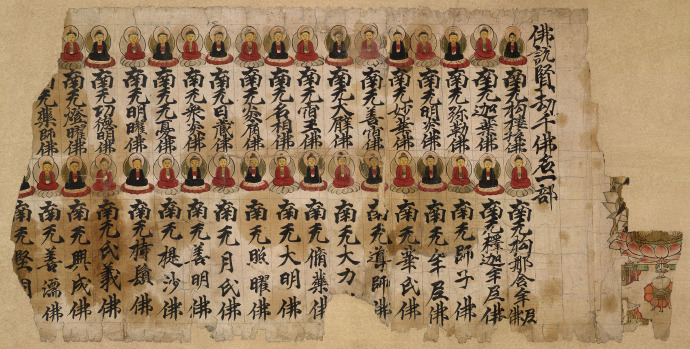 佛說賢劫千佛名一部
南无拘樓孫佛
南无迦葉佛
南无弥勒佛
南无明炎佛
南无妙華佛
南无善宿佛
南无大臂佛
南无宿王佛
南无名相佛
南无炎肩佛
南无日藏佛
南无衆炎佛
南无无憂佛
南无明曜佛
南无功德明佛
南无燈曜佛
无藥師佛
南无拘那含牟尼佛
南无釋迦牟尼佛
南无師子佛
南无牟尼佛
南无華氏佛
南无導師佛
南无大力
南无脩藥佛
南无大明佛
南无照曜佛
南无月氏佛
南无善明佛
南无提沙佛
南无持鬘佛
南无氏義佛
南无興成佛
南无善濡佛
南无堅